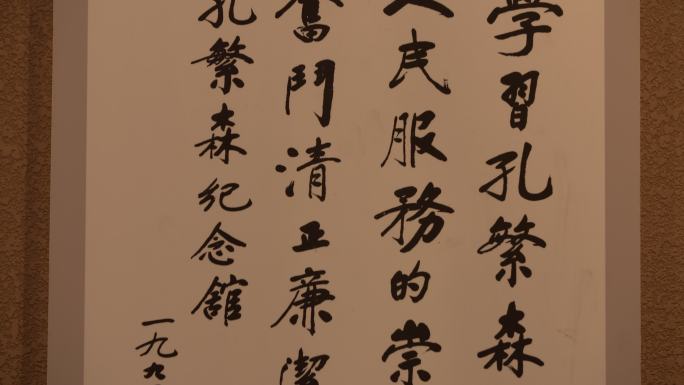 學習孔繁森
人民服務的崇
奮鬥清正廉潔
孔繁森纪念館
一九九